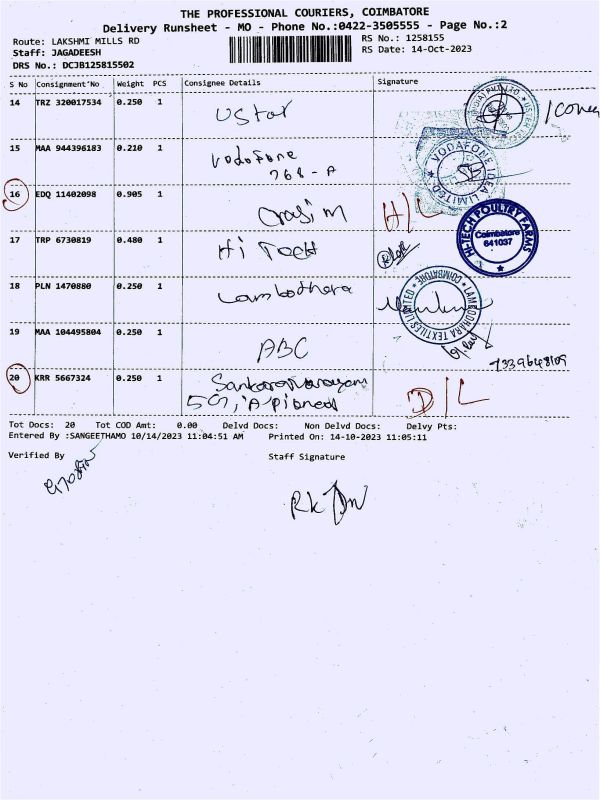 THE PROFESSIONAL COURIERS, COIMBATORE
Delivery Runsheet - MO - Phone No.:0422-3505555 - Page No.:2
Route: LAKSHMI MILLS RD
RS No.: 1258155
Staff: JAGADEESH
RS Date: 14-Oct-2023
DRS No.: DCJB125815502
S No Consignment'No Weight PCS Consignee Details Signature
14 TRZ 320017534 0.250 1 UStar
15 MAA 944396183 0.210 1 Vodofone
768-A
VODAFONE IDEA LIMITED
16 EDQ 11402098 0.905 1 H/L
17 TRP 6730819 0.480 1 Hi Tech
HI-TECH POULTRY FARMS
Coimbatore
641037
18 PLN 1470880 0.250 1
LAMBODHARA TEXTILES LIMITED * COIMBATORE
19 MAA 104495804 0.250 1 ABC
7339648109
20 KRR 5667324 0.250 1 Sankaranarayanan D/L
Tot Docs: 20 Tot COD Amt: 0.00 Delvd Docs: Non Delvd Docs: Delvy Pts:
Entered By :SANGEETHAMO 10/14/2023 11:04:51 AM Printed On: 14-10-2023 11:05:11
Verified By Staff Signature